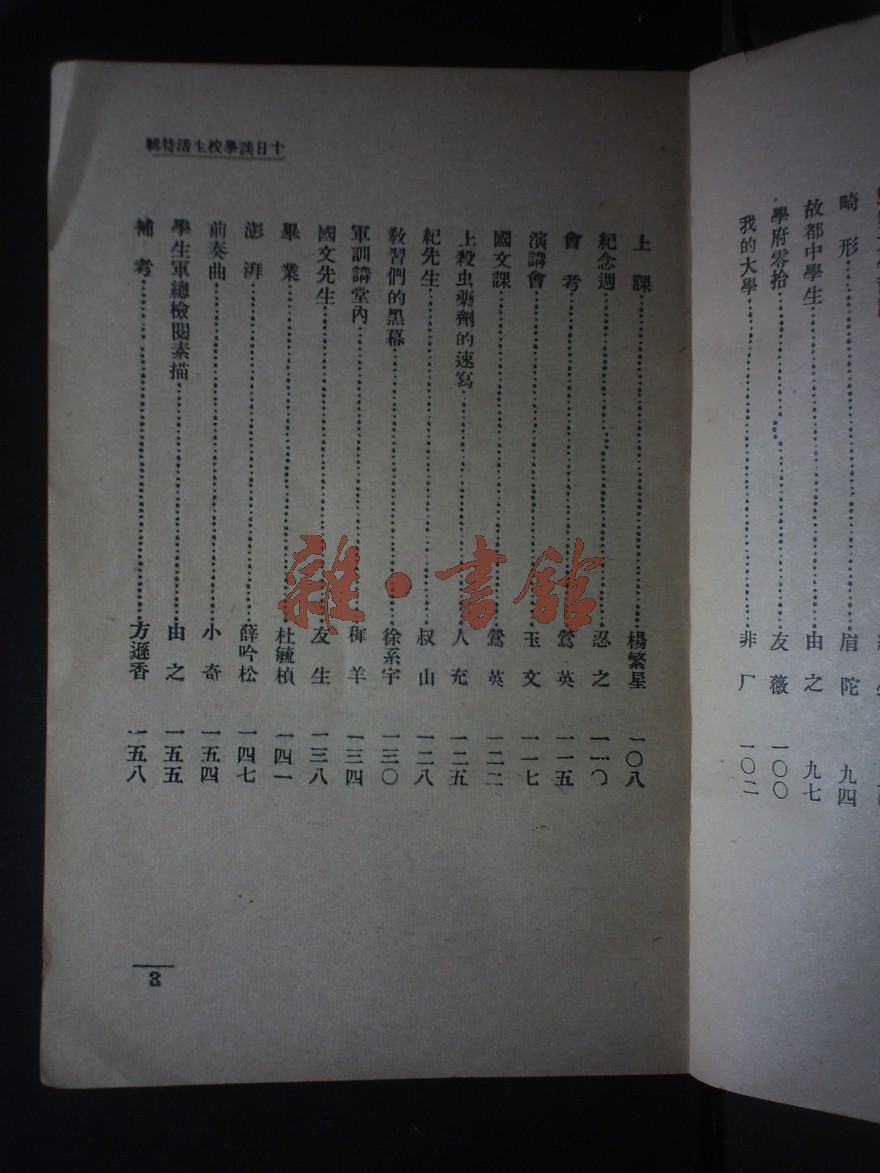 畸形 眉陀 九四
故都中學生 由之 九七
學府零拾 友薇 一〇〇
我的大學 非厂 一〇二
十日談學校生活特輯
上課 楊繁星 一〇八
紀念週 忍之 一一〇
會考 鶯英 一一五
演講會 玉文 一一七
國文課 鶯英 一二二
上殺虫藥劑的速寫 人充 一二五
紀先生 叔山 一二八
教習們的黑幕 徐系宇 一三〇
軍訓講堂內 羊 一三四
國文先生 友生 一三八
畢業 杜毓楨 一四一
澎湃 薛吟松 一四七
前奏曲 小奇 一五四
學生軍總檢閱素描 由之 一五五
補考 方遜香 一五八
3
雜·書館